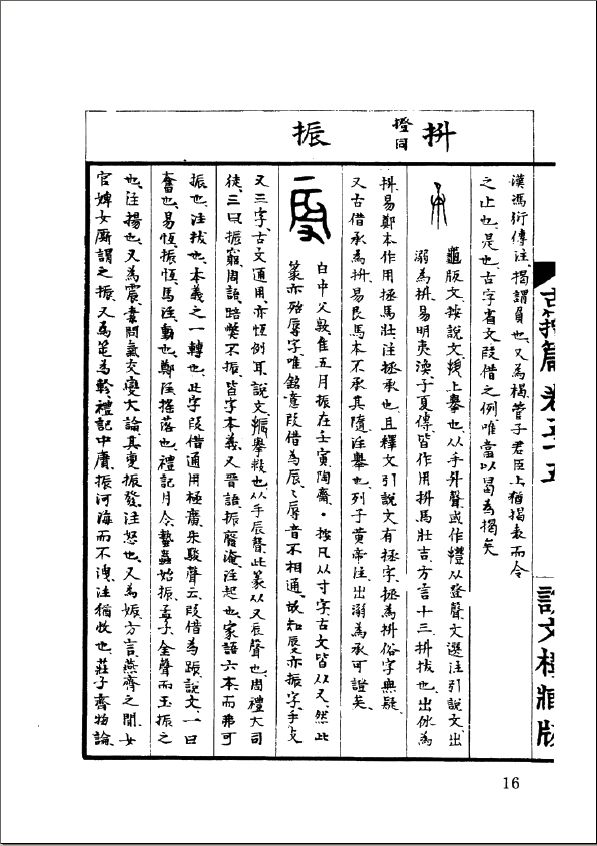 抍 撜同
振
古籀篇 卷五十五
說文樓藏版
漢馮衍傳注、揭謂負也、又為楬、管子君臣上猶揭表而令
之止也是也、古字省文叚借之例、唯當以曷為揭矣
龜版文、按說文、上舉也、从手升聲、或作撜、从登聲、文選注引說文出
溺為抍、易明夷渙子夏傳皆作用抍馬壯吉、方言十三抍拔也、出休為
抍、易鄭本作用拯馬壯、注拯承也、且釋文引說文有拯字、拯為抍俗字無疑、
又古借承為抍、易艮馬本不承其隨、注舉也、列子黃帝注出溺為承可證矣、
白中父𣪘、隹五月振在壬寅、陶齋・按凡从寸字古文皆从又、然此
篆亦殆辱字、唯銘意叚借為辰、辰辱音不相通、故知亦振字、手支
又三字、古文通用、亦恆例耳、說文、振、舉救也、从手辰聲、此篆从又辰聲也、周禮大司
徒、三曰振窮、周語、弊不振、皆字本義、又晉語、振廢淹、注起也、家語六本、而弗可
振也、注拔也、本義之一轉也、此字叚借通用極廣、朱駿聲云、叚借為、說文、一曰
奮也、易恆振恆、馬注、動也、鄭注搖落也、禮記月令、蟄蟲始振、孟子、金聲而玉振之
也、注揚也、又為震、素問氣交變大論其變振發、注怒也、又為娠、方言、燕齊之間、女
官婢女廝謂之振、又為、禮記中庸、振河海而不洩、注猶收也、莊子齊物論、
16